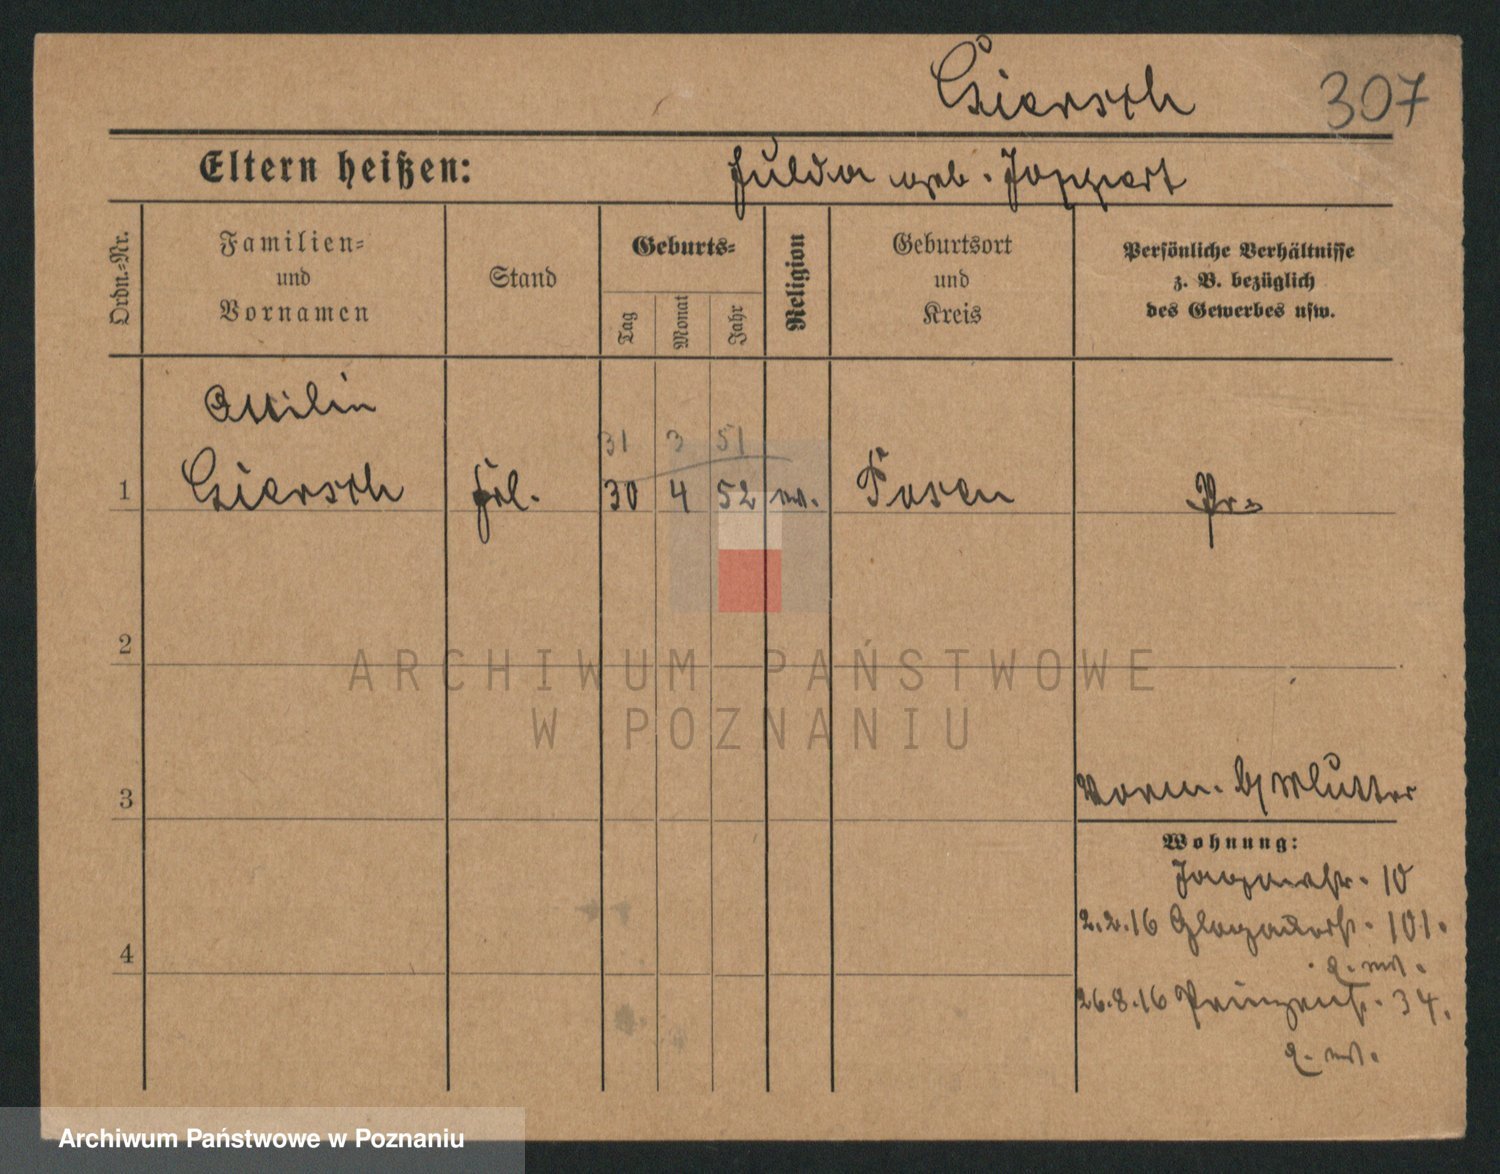 Giersch 307
Eltern heißen: Hulda geb. Joppert
Ordn.=Nr.
Familien=
und
Vornamen
Stand
Geburts=
Tag
Monat
Jahr
Religion
Geburtsort
und
Kreis
Persönliche Verhältnisse
z. B. bezüglich
des Gewerbes usw.
Ottilie
31 3 51
1 Giersch Frl. 30 4 52 Posen Pr.
2
3
b/ Mutter
Wohnung:
10
2.2.16 Glogauerstr. 101.
26.8.16 Prinzenstr. 34.
4
ARCHIWUM PAŃSTWOWE
W POZNANIU
Archiwum Państwowe w Poznaniu